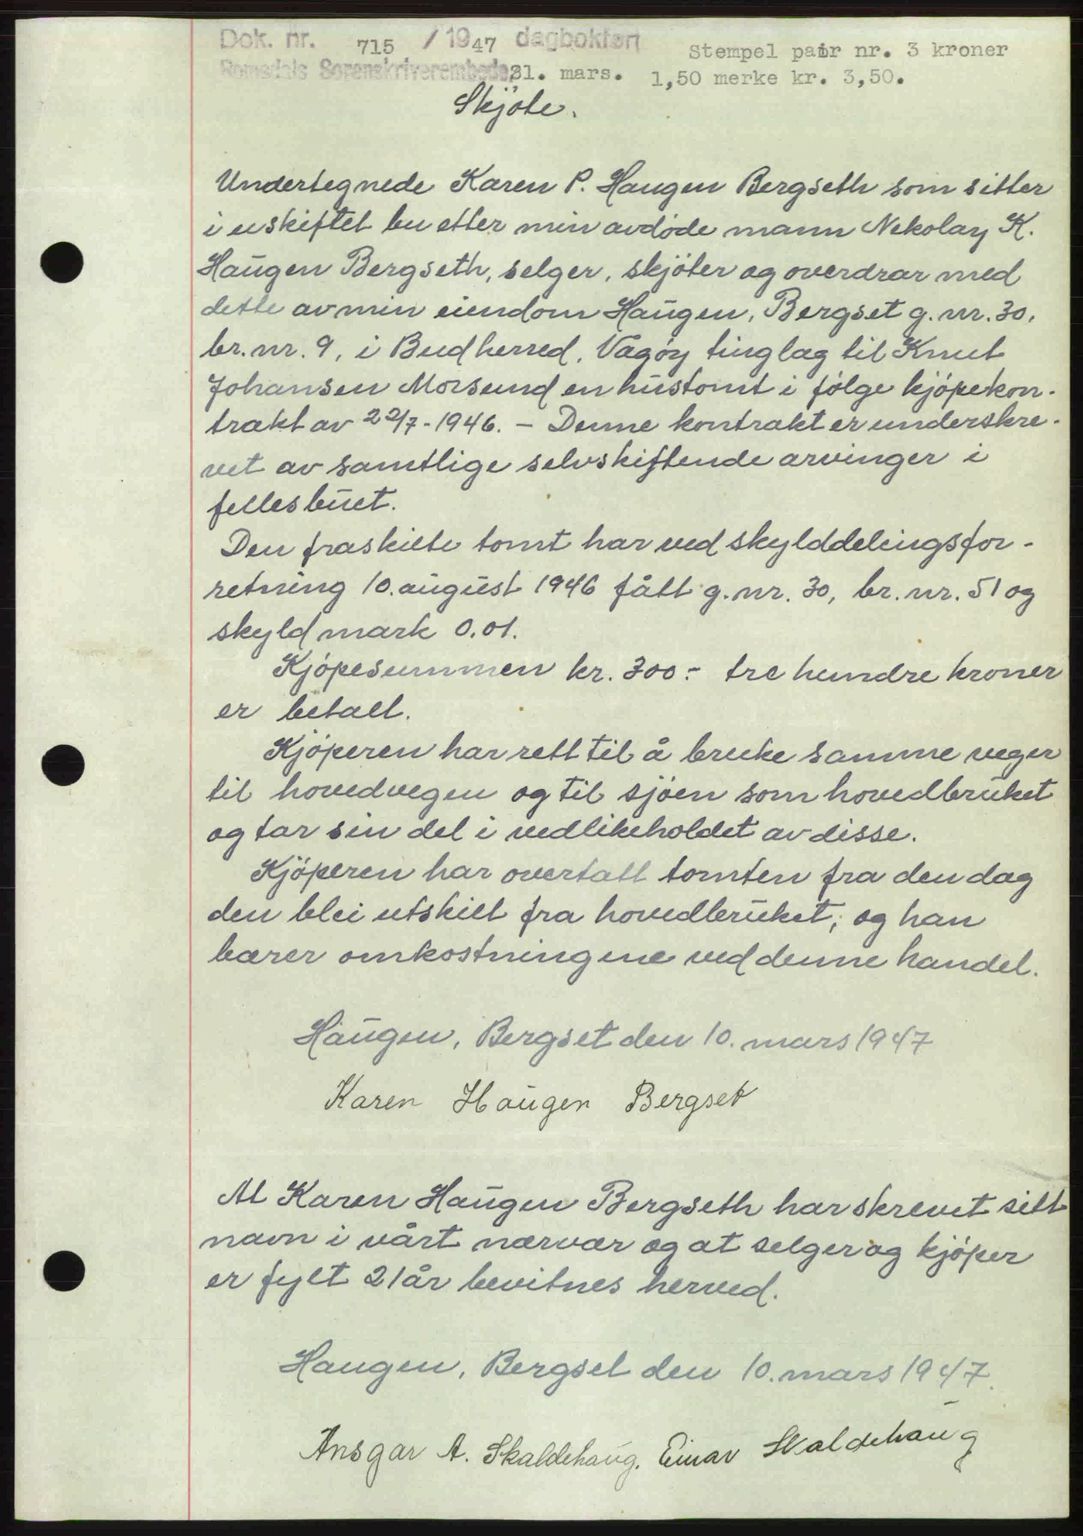 Dok. nr. 715 / 1947 dagbokført Stempel papir nr. 3 kroner
Romsdals Sorenskriverembede 31. mars. 1,50 merke kr. 3,50.
Skjøte.
Undertegnede Karen P. Haugen Bergseth som sitter
i uskiftet bu etter min avdøde mann Nekolay K.
Haugen Bergseth, selger, skjøter og overdrar med
dette av min eiendom Haugen, Bergset g. nr. 30,
br. nr. 9, i Bud herred, Vågøy tinglag til Knut
Johansen Morsund en hustomt i følge kjøpekon-
trakt av 22/7-1946. – Denne kontrakt er underskre-
vet av samtlige selvskiftende arvinger i
fellesbuet.
Den fraskilte tomt har ved skylddelingsfor-
retning 10. august 1946 fått g. nr. 30, br. nr. 51 og
skyld mark 0.01.
Kjøpesummen kr. 300.- tre hundre kroner
er betalt.
Kjøperen har rett til å bruke samme veger
til hovedvegen og til sjøen som hovedbruket
og tar sin del i vedlikeholdet av disse.
Kjøperen har overtatt tomten fra den dag
den blei utskilt fra hovedbruket, og han
bærer omkostningene ved denne handel.
Haugen, Bergset den 10. mars 1947
Karen Haugen Bergset
At Karen Haugen Bergseth har skrevet sitt
navn i vårt nærvær og at selger og kjøper
er fylt 21 år bevitnes herved.
Haugen, Bergset den 10. mars 1947.
Ansgar A. Skaldehaug. Einar Skaldehaug